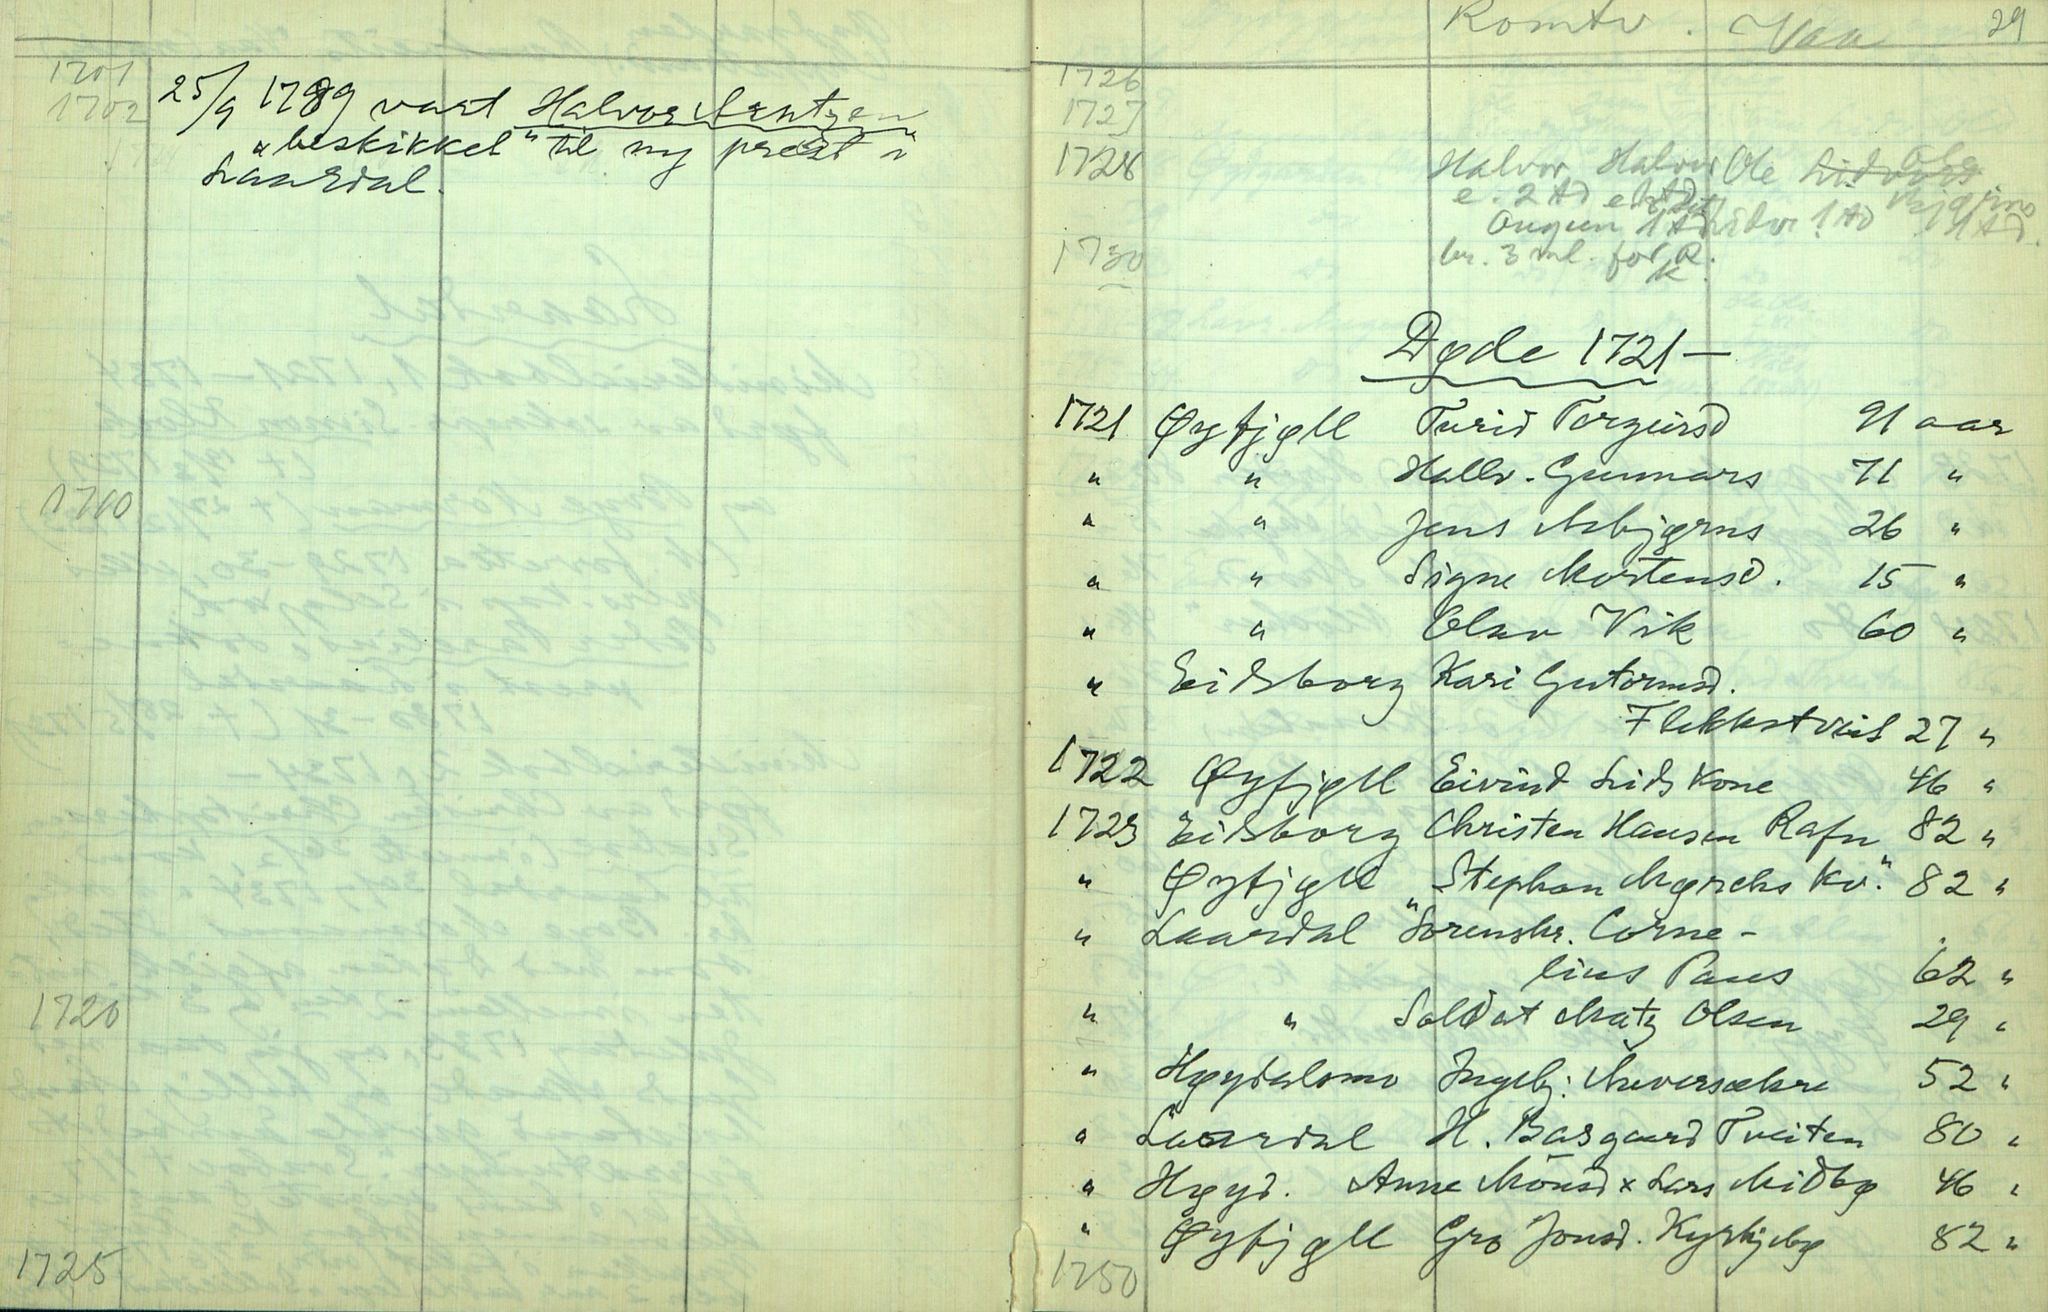 1701
1702
25/9 1789 vart Halvor Arntzen
"beskikket" til ny prest i
Laardal.
1710
1720
1725
Komtv. Vaa 29
1726
1727
1728 Halvor Halvor Ole
e. 2 Ad
Ougun 1 Ad
1730 br. 3 ml. for R.
K.
Døde 1721—
1721 Øyfjell Turid Torgeirsd 91 aar
" " Hallv. Gunnars 71 "
" " Jens Asbjørns 26 "
" " Signe Mortensd. 15 "
" " Olav Vik 60 "
" Eidsborg Kari Gutormsd.
Flekstveit 27 "
1722 Øyfjell Eivind Lids Kone 46 "
1723 Eidsborg Christen Hansen Rafn 82 "
" Øyfjell "Stephan Mørchs Kv." 82 "
" Laardal "Sorenskr. Corne-
lius Paus 62 "
" " Soldat Matz Olsen 29 "
" Høydalsmo Ingebj. 52 "
" Laardal H. Basgaard Tveiten 80 "
" Høyd. Anne Monsd x Lars Midbø 46 "
" Øyfjell Gro Jonsd. Kyrkjebø 82 "
1750